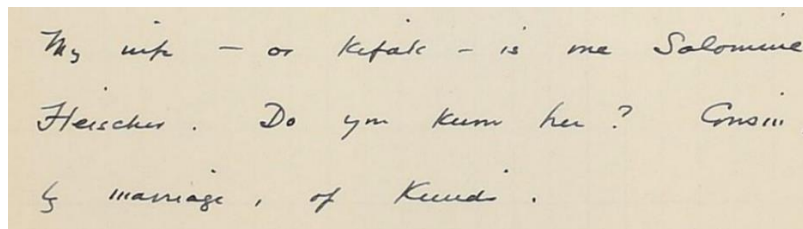 My wife – or Kefale – is one Salomine
Fleischer. Do you know her? Cousin
by marriage, of Kuudi.